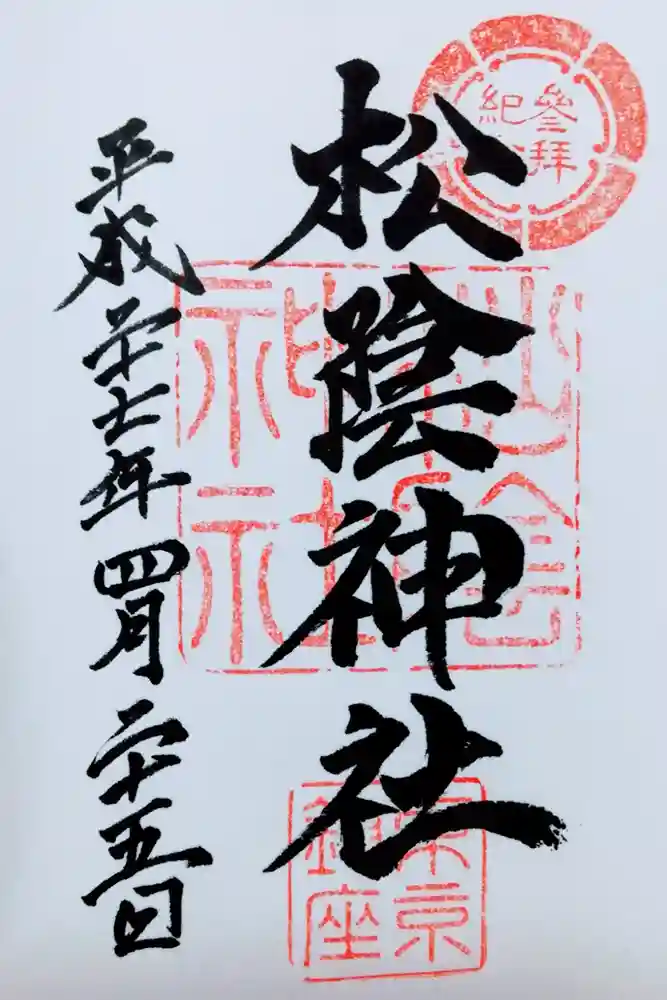 參拜
紀
松陰神社
松陰
神社
東京
鎮座
平成二十七年四月二十五日